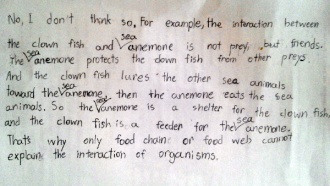 No, I don't think so. For example, the interaction between
the clown fish and sea anemone is not prey, but friends.
The sea anemone protects the clown fish from other preys.
And the clown fish lures the other sea animals
toward the sea anemone, then the anemone eats the sea
animals. So the sea anemone is a shelter for the clown fish,
and the clown fish is a feeder for the sea anemone.
Thats why only food chain or food web cannot
explain the interaction of organisms.